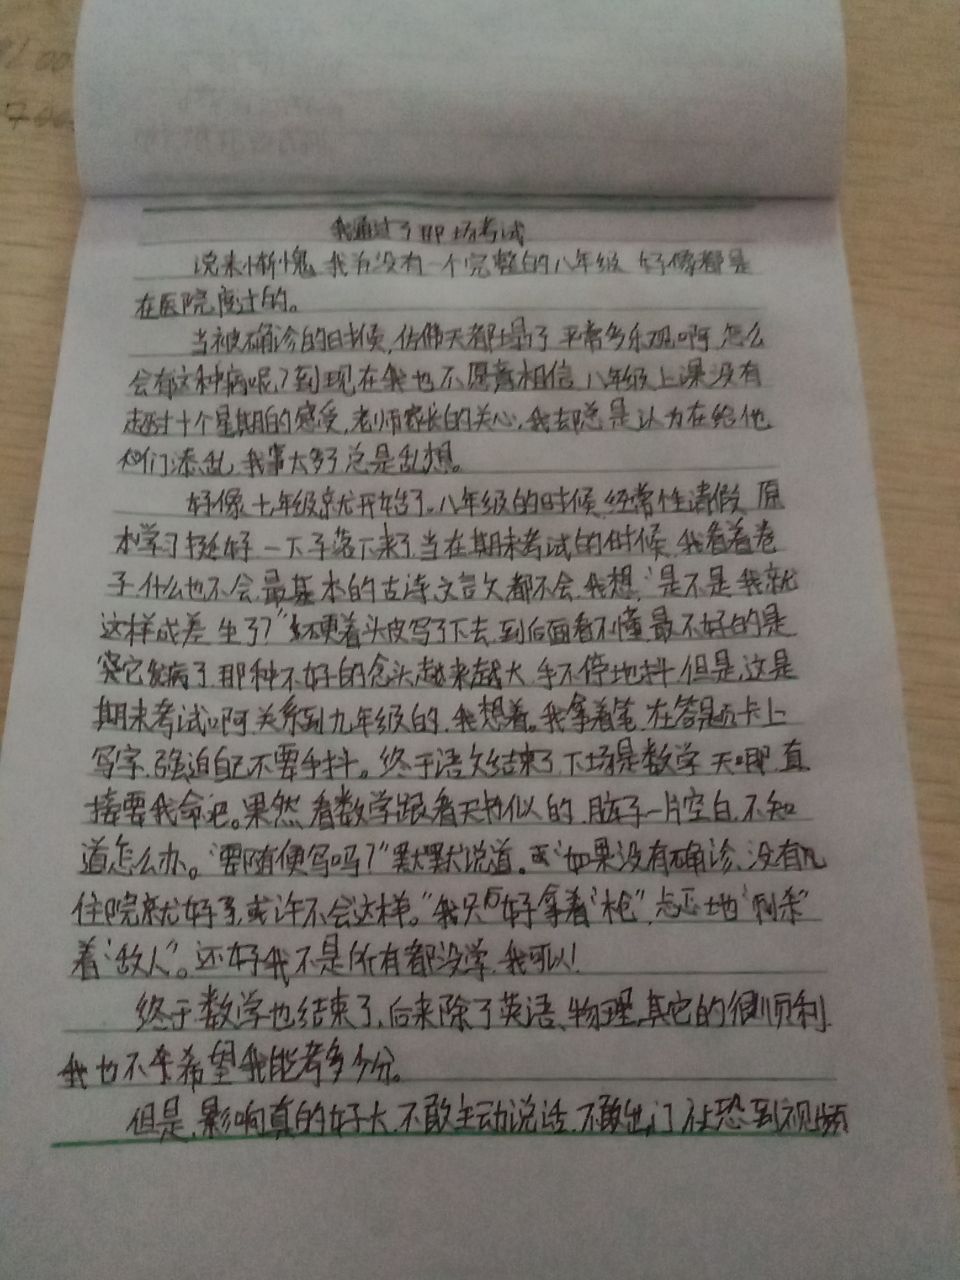 我通过了那场考试
说来惭愧，我为没有一个完整的八年级 好像都是
在医院度过的。
当被确诊的时候，仿佛天都塌了 平常多乐观啊，怎么
会有这种病呢？到现在我也不愿意相信，八年级上课没有
超过十个星期的感受，老师家长的关心，我却总是认为在给他
们添乱，我事太多了总是乱想。
好像七年级就开始了。八年级的时候，经常性请假，原
本学习挺好，一下子落下来了，当在期末考试的时候，我看着卷
子，什么也不会，最基本的古诗，文言文都不会，我想，“是不是我就
这样成差生了？”硬着头皮写了下去，到后面看不懂，最不好的是
突它发病了，那种不好的念头，越来越大，手不停地抖，但是，这是
期末考试啊，关系到九年级的，我想着。我拿着笔，在答题卡上
写字，强迫自己不要手抖。终于语文结束了，下场是数学，天哪，直
接要我命吧。果然，看数学跟看天书似的，脑子一片空白，不知
道怎么办。“要随便写吗？”默默说道。“如果没有确诊、没有
住院就好了，或许不会这样。”我只好拿着“枪”，地“刺杀”
着“敌人”。还好我不是所有都没学，我可以！
终于数学也结束了，后来除了英语、物理，其它的很顺利，
我也不希望我能考多少分。
但是，影响真的好大，不敢主动说话，不敢出门，社恐到视频